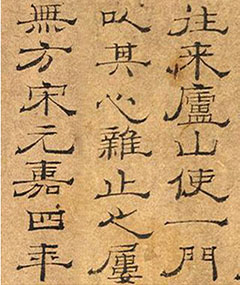 往来廬山使一門
以其心雜止之屢
無方宋元嘉四年